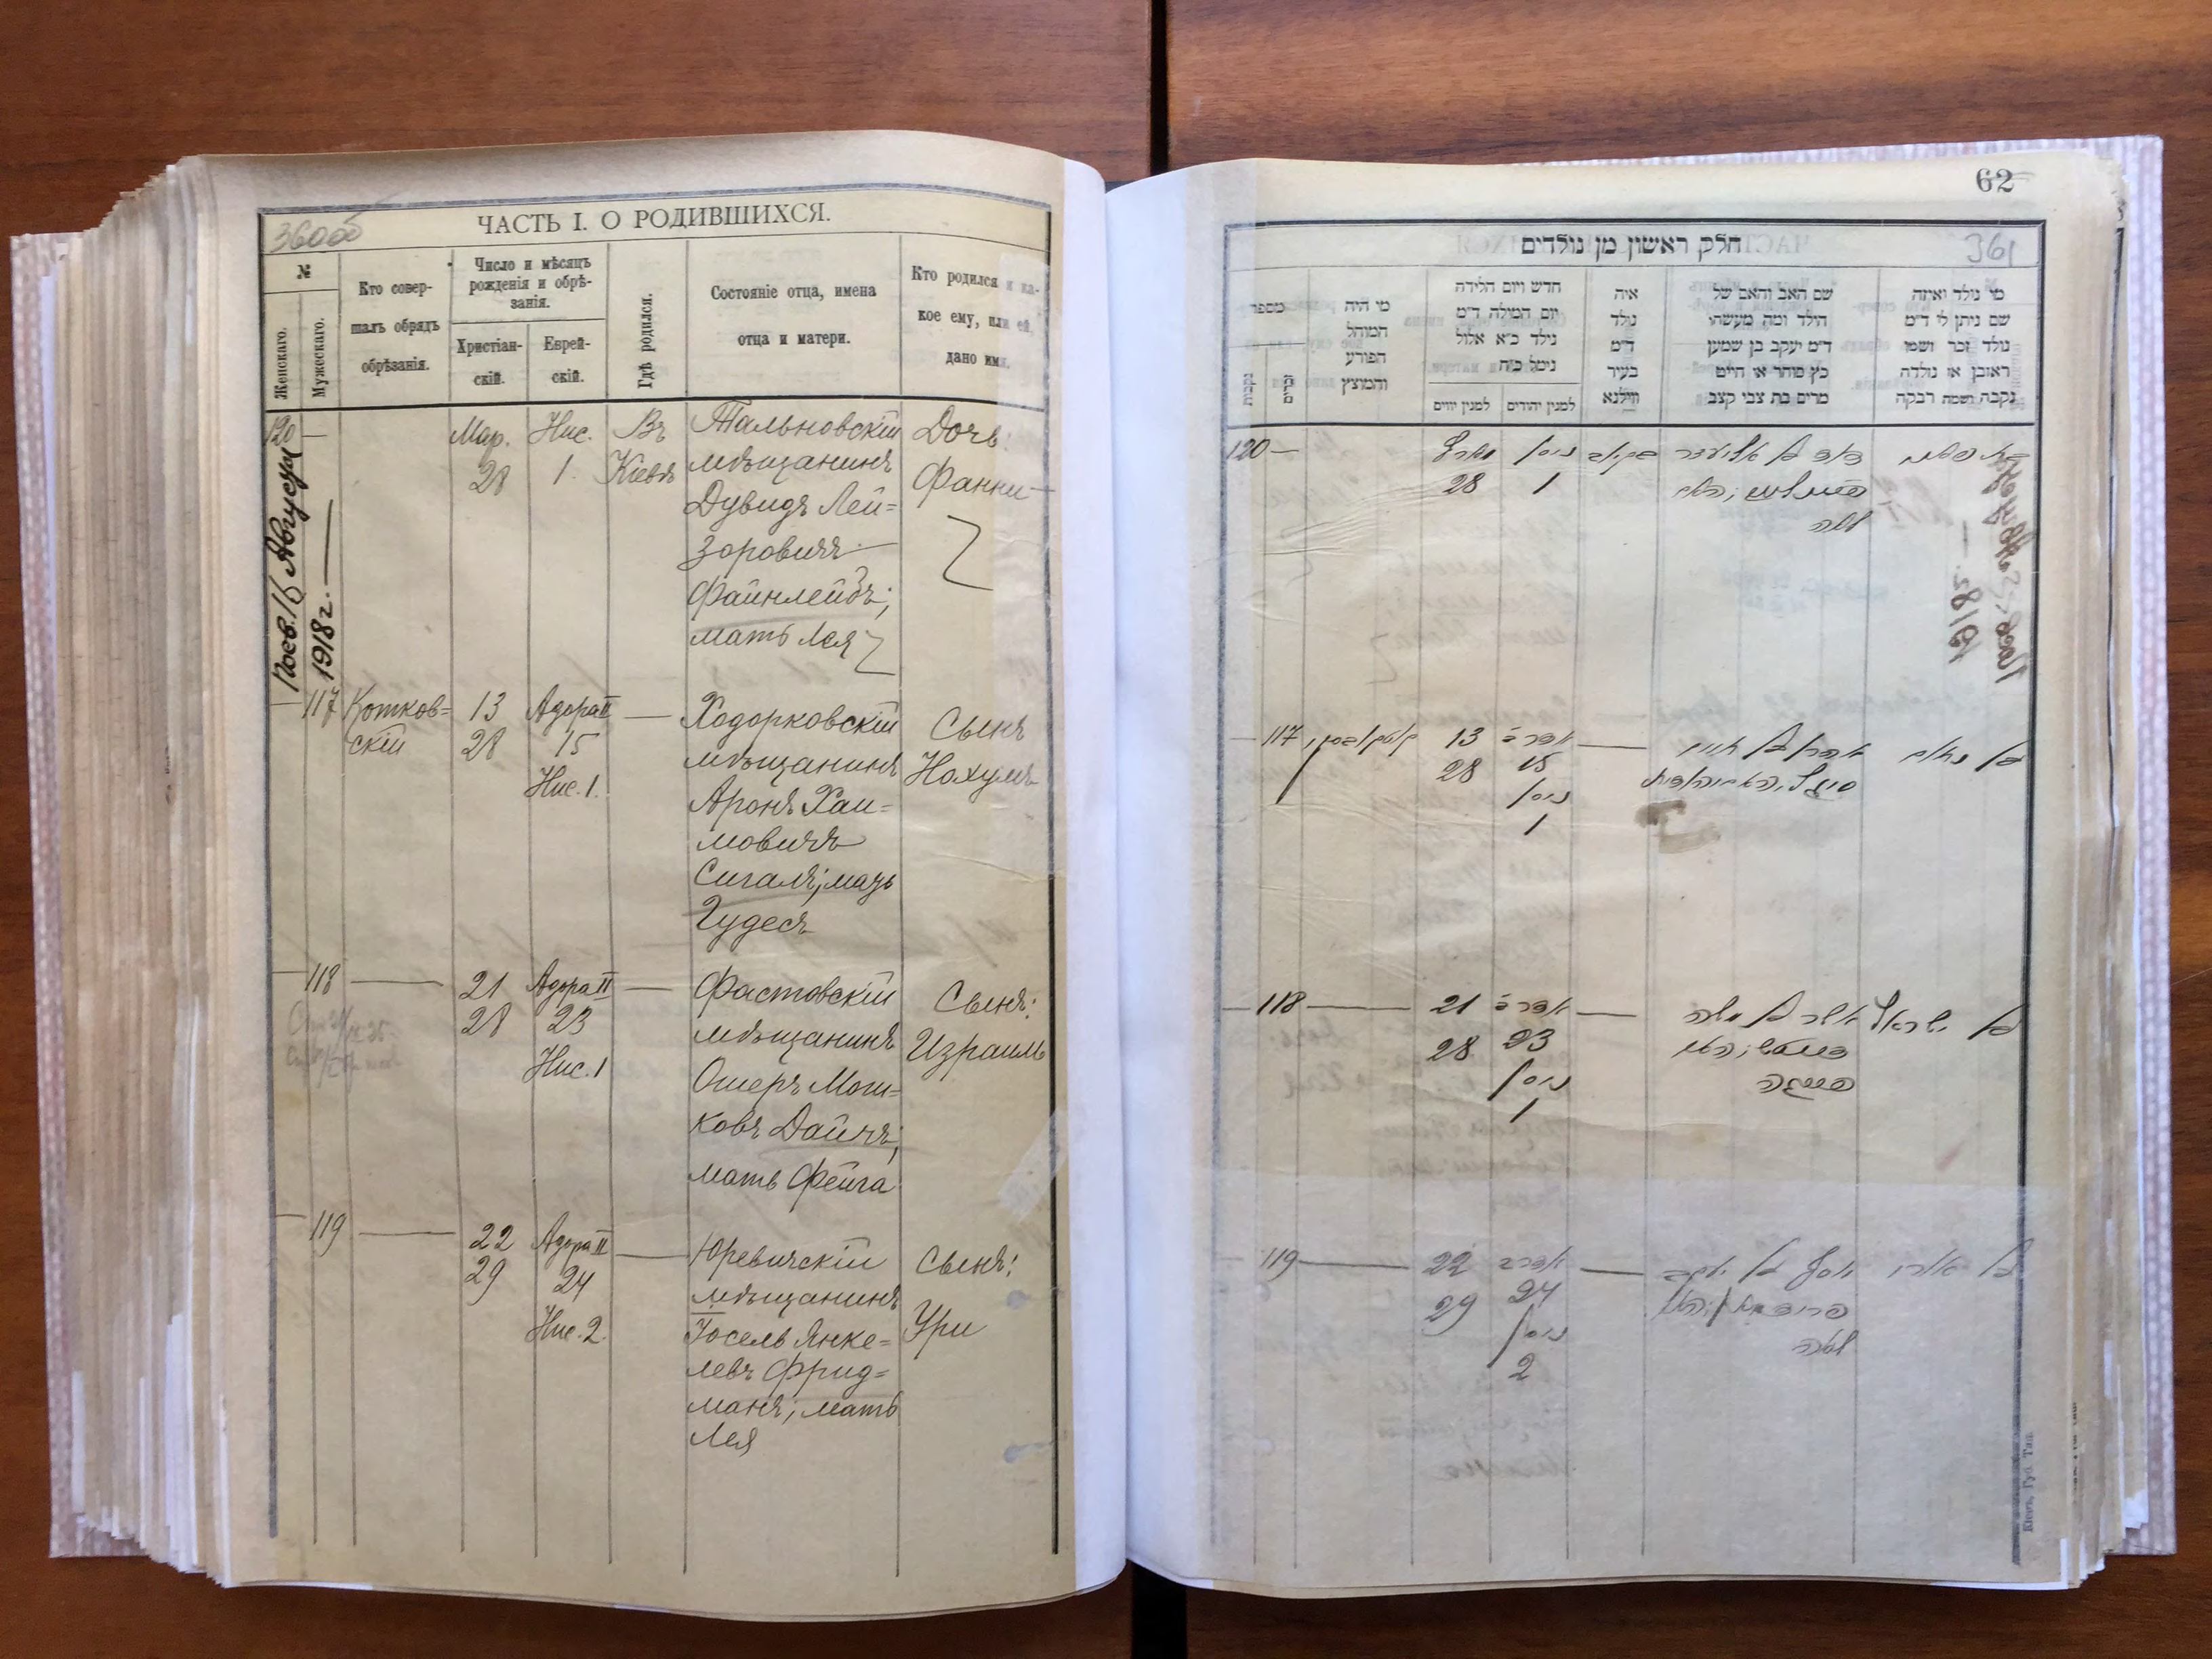 ЧАСТЬ I. О РОДИВШИХСЯ.
№
Женскаго.
Мужескаго.
Кто совер-
шалъ обрядъ
обрѣзанія.
Число и мѣсяцъ
рожденія и обрѣ-
занія.
Христіан-
скій.
Еврей-
скій.
Гдѣ родился.
Состояніе отца, имена
отца и матери.
Кто родился и ка-
кое ему, или ей
дано имя.
120 —
Мар.
28
Нис.
1.
Въ
Кіевѣ
Тальновскій
мѣщанинъ
Дувидъ Лей=
зоровичъ
Файнлейбъ;
мать Лея
Дочь:
Фанни
Посв. 16 Августа
1918 г.
117
Котков=
скій
13
28
Адара II
15
Нис. 1.
Ходорковскій
мѣщанинъ
Аронъ Хаи=
мовичъ
Сигалъ; мать
Гудесъ
Сынъ
Нохумъ
118
21
28
Адара II
23
Нис. 1
Фастовскій
мѣщанинъ
Ошеръ Мош=
ковъ Дайчъ;
мать Фейга
Сынъ:
Израиль
119
22
29
Адара II
24
Нис. 2.
Юревичскій
мѣщанинъ
Іосель Янке=
левъ Фрид=
манъ; мать
Лея
Сынъ:
Ури
62
361
חלק ראשון מן נולדים
מספר
נקבות
זכרים
מי היה
המוהל
הפורע
והמוצץ
חדש ויום הלידה
יום המולה ד״מ
נילד כ״א אלול
נימל כ״ח
למנין יווים
למנין יהודים
איה
נולד
ד״מ
בעיר
ווילנא
שם האב והאם של
הילד ומה מעשהו
ד״מ יעקב בן שמעון
כץ סוחר או חייט
מרים בת צבי קצב
מי נולד ואיזה
שם ניתן לו ד״מ
נולד זכר ושמו
ראובן או נולדה
נקבה ושמה רבקה
120 —
מארץ
28
ניסן
1
דוד בן אליעזר
לאה
117
13
28
אדר ב
15
ניסן
1
אהרן בן חיים
בן נחום
118
21
28
אדר ב
23
ניסן
1
אשר בן משה
פייגה
בן ישראל
119
22
29
אדר ב
24
ניסן
2
יוסף בן יעקב
לאה
בן אורי
Кіевъ, Губ. Тип.